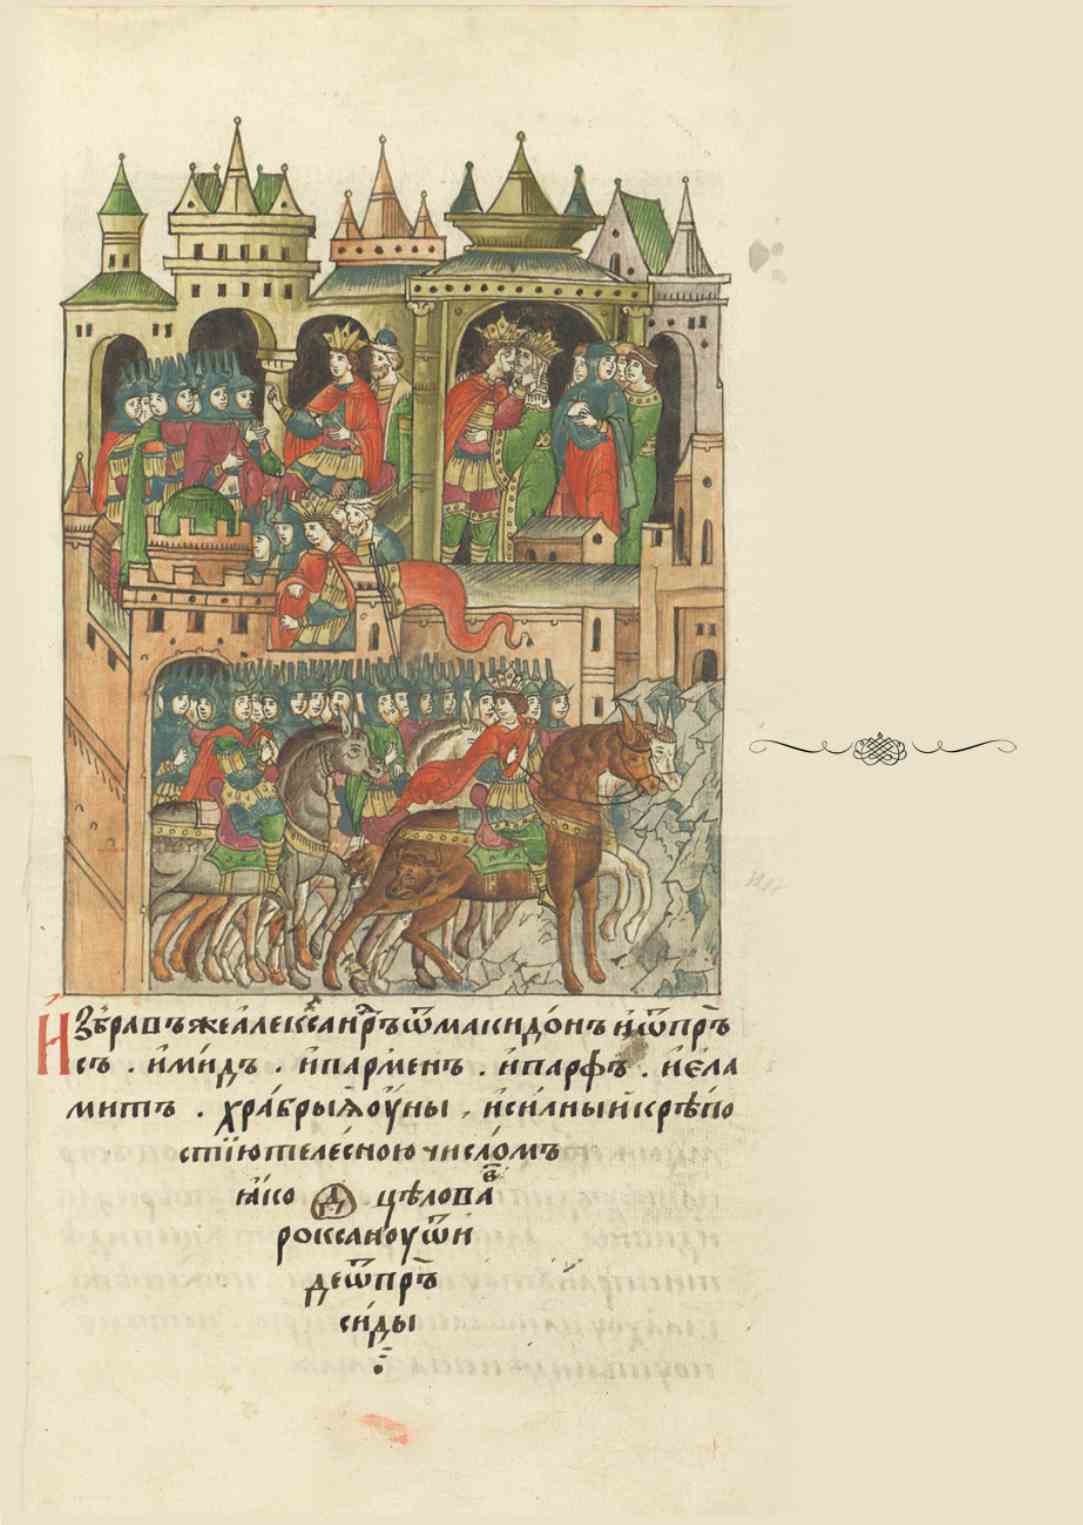 Избравъ же алеѯанръ ѿ макидо́нъ и́ ѿ пръ
съ . и́ ми́дъ . и́ парме́нъ . и́ парфъ . и́ є́ла
митъ . хра́брыѧ ю́ѹны , и́ си́лный и́ крѣпо
стїю теле́сною число́мъ
ꙗ́ко д҃ цѣлова́в
роксанѹ ѿи́
де ѿ пръ
си́ды